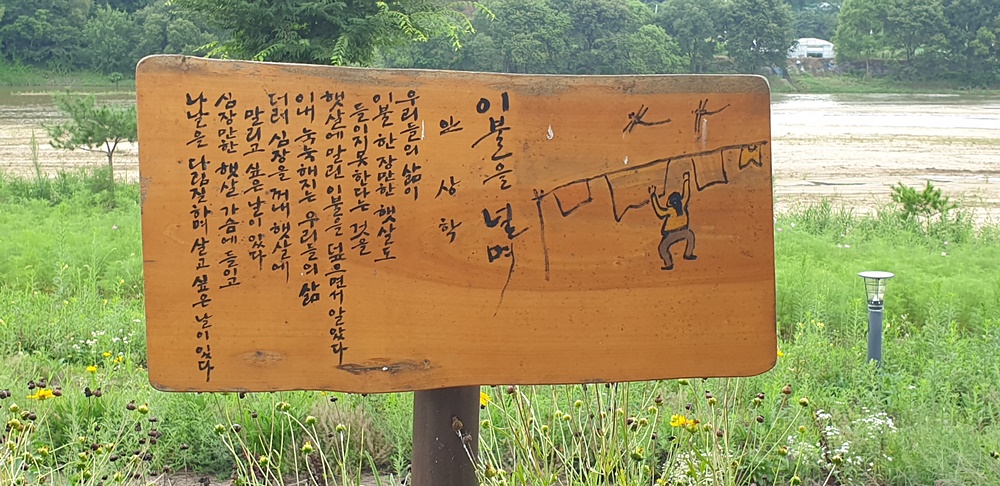 이불을 널며
안상학
우리들의 삶이
이불 한 장만한 햇살도
들이지 못한다는 것을
햇살에 말린 이불을 덮으면서 알았다
이내 눅눅해지는 우리들의 삶
더러 심장을 꺼내 햇살에
말리고 싶은 날이 있다
심장만한 햇살 가슴에 들이고
나날을 다림질하며 살고 싶은 날이 있다